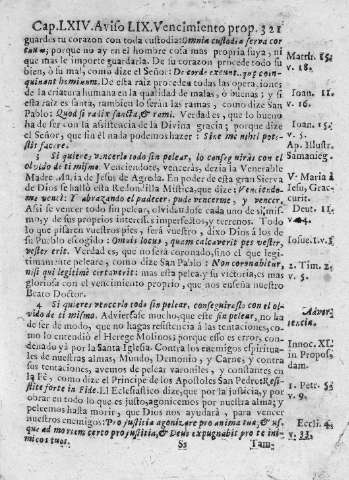 Cap. LXIV. Aviso LIX. Vencimiento prop. 321
guardes tu corazon con toda custodia: Omnia custodia serva cor
tuum, porque no ay en el hombre cosa mas propria suya, ni
que mas le importe guardarla. De su corazon procede todo su
bien, ò su mal, como dize el Señor: De corde exeunt, quæ coin-
quinant hominem. De esta raiz procede todas las operaciones
de la criatura humana en la qualidad de malas, ò buenas; y si
esta raiz es santa, tambien lo seràn las ramas, como dize San
Pablo: Quod si radix sancta, & rami. Verdad es, que lo bueno
ha de ser con la assistencia de la Divina gracia; porque dize
el Señor, que sin èl nada podemos hazer: Sine me nihil pot-
estis facere.
3 Si quieres vencerlo todo sin pelear, lo conseguiràs con el
olvido de ti mismo. Venciendote, venceràs, dezia la Venerable
Madre Maria de Jesus de Agreda. En poder de esta gran Sierva
de Dios se hallò esta Redondilla Mistica, que dize: Venciendo-
me vencì: Y abrazando el padecer, pude vencerme, y vencer.
Assi se vence todo sin pelear, olvidandose cada uno de sì mis-
mo, y de sus proprios interesses imperfectos, y terrenos. Todo
lo que pisaren vuestros pies, serà vuestro, dixo Dios à los de
su Pueblo escogido: Omnis locus, quem calcaverit pes vester,
vester erit. Verdad es, que no serà coronado, sino el que legi-
timamente peleare, como dize San Pablo: Non coronabitur,
nisi qui legitimè certaverit: mas esta pelea, y su victoria, es mas
gloriosa con el vencimiento proprio, que nos enseña nuestro
Beato Doctor.
4 Si quieres vencerlo todo sin pelear, conseguiràslo con el ol-
vido de ti mismo. Adviertase mucho, que este sin pelear, no ha
de ser de modo, que no hagas resistencia à las tentaciones, co-
mo lo entendiò el Herege Molinos, porque esso es error, con-
denado yà por la Santa Iglesia. Contra los enemigos espiritua-
les de nuestras almas, Mundo, Demonio, y Carne, y contra
sus tentaciones, avemos de pelear varoniles, y constantes en
la Fè, como dize el Principe de los Apostoles San Pedro: Resi-
stite forte in Fide. El Eclesiastico dize, que por la justicia, y por
obrar en todo lo que es justo, agonicemos por nuestra alma; y
peleemos hasta morir, que Dios nos ayudarà, para vencer
nuestros enemigos: Pro justitia agonizare pro anima tua, & us-
que ad mortem certa pro justitia, & Deus expugnabit pro te ini-
micos tuos.
Ss Tam-
Matth. 15.
v. 18.
Ioan. 11.
v. 16.
Ioan. 15.
v. 5.
Ap. Illustr.
Samanieg.
V. Maria à
Iesu, Grac-
curit.
Deut. 11.
v. 24.
Iosue. 1. v. 3.
2. Tim. 2.
v. 5.
Adver-
tencia.
Innoc. XI.
in Propos.
dam.
1. Petr. 5.
v. 9.
Eccli. 4.
v. 33.